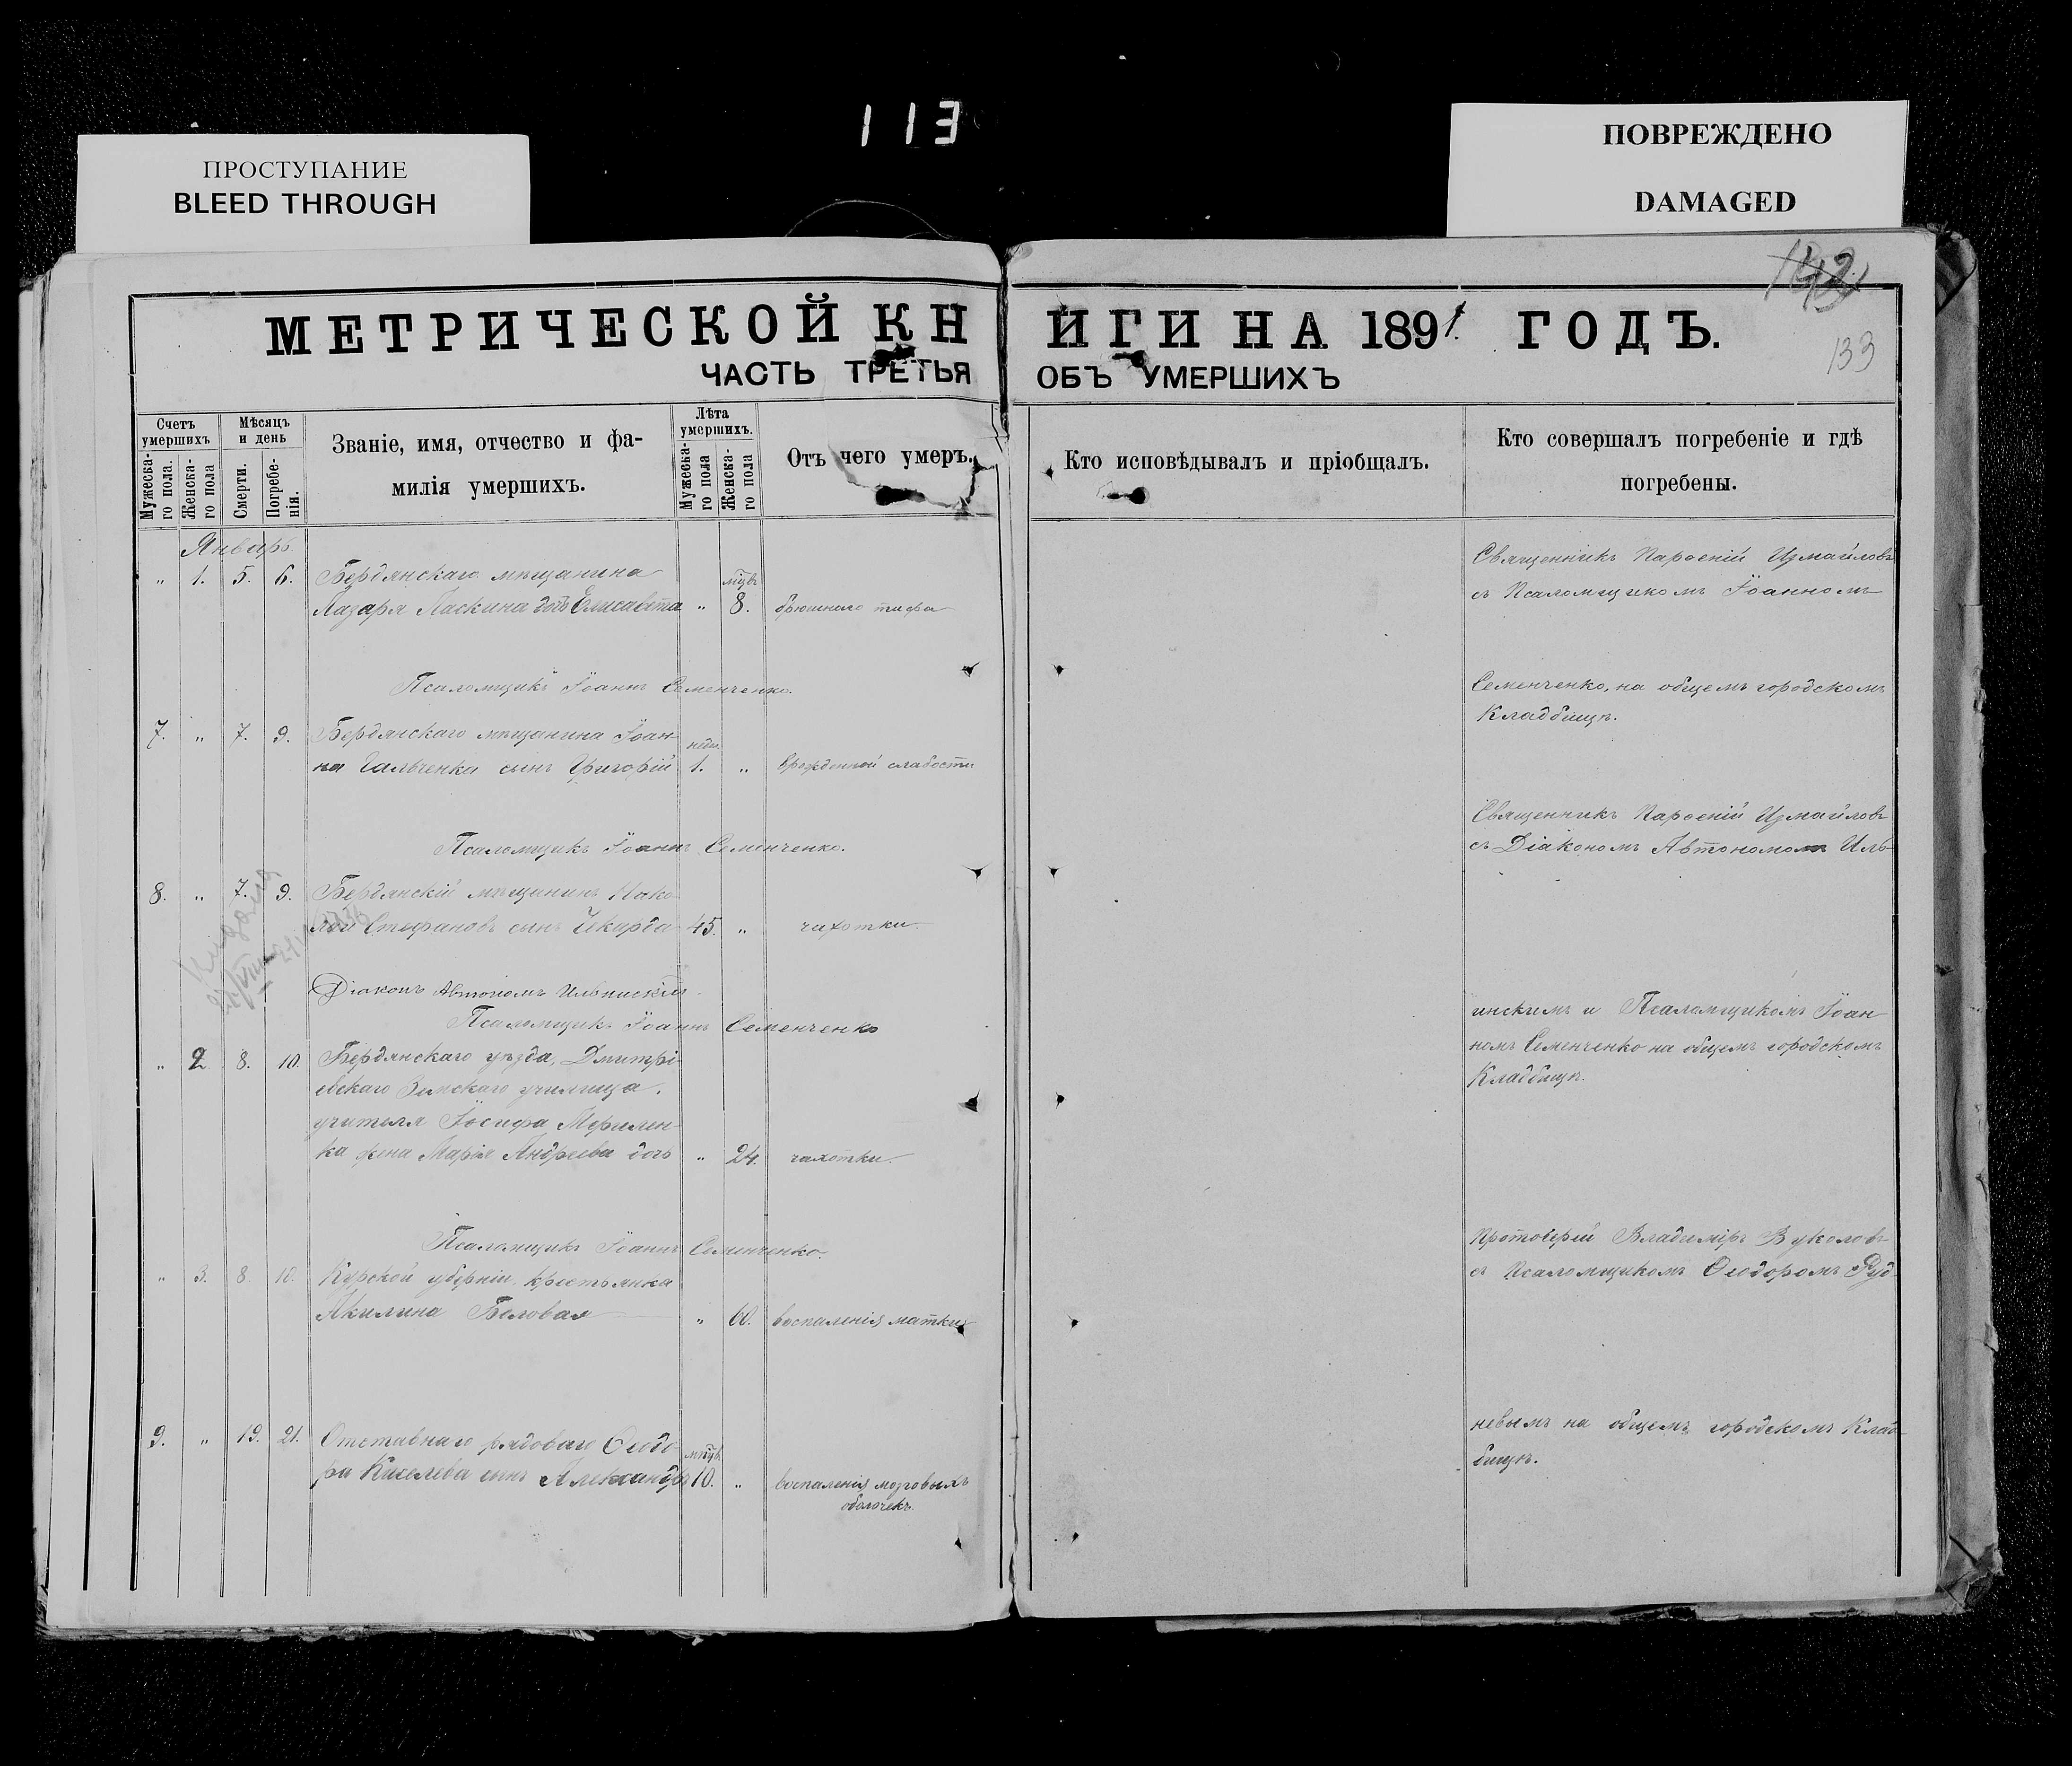 113
ПРОСТУПАНИЕ
BLEED THROUGH
ПОВРЕЖДЕНО
DAMAGED
142
133
МЕТРИЧЕСКОЙ КНИГИ НА 1891 ГОДЪ.
ЧАСТЬ ТРЕТЬЯ ОБЪ УМЕРШИХЪ
Счетъ умершихъ
Мужеска-го пола.
Женска-го пола
Мѣсяцъ и день
Смерти.
Погребе-нія.
Званіе, имя, отчество и фа-
милія умершихъ.
Лѣта умершихъ.
Мужеска-го пола
Женска-го пола
Отъ чего умеръ.
Кто исповѣдывалъ и пріобщалъ.
Кто совершалъ погребеніе и гдѣ
погребены.
Январь.
" 1. 5. 6. Бердянскаго мѣщанина мѣцв
Лазаря Паскина дочь Елисавета " 8. брюшнаго тифа
Священникъ Парѳеній Измайловъ
съ Псаломщикомъ Іоанномъ
Псаломщикъ Іоаннъ Семенченко.
Семенченко, на общемъ городскомъ
Кладбищѣ.
7. " 7. 9. Бердянскаго мѣщанина Іоан-
на Гальченка сынъ Григорій недѣ. 1. " врожденной слабости
Священникъ Парѳеній Измайловъ
съ Діакономъ Автономомъ Иль-
Псаломщикъ Іоаннъ Семенченко.
8. " 7. 9. Бердянскій мѣщанинъ Нико-
лай Стефановъ сынъ Чекирда 45. " чахотки.
Діаконъ Автономъ Ильинскій
Псаломщикъ Іоаннъ Семенченко
инскимъ и Псаломщикомъ Іоан-
номъ Семенченко на общемъ городскомъ
Кладбищѣ.
" 2 8. 10. Бердянскаго уѣзда, Дмитрі-
евскаго Земскаго училища,
учителя Іосифа
ка жена Марія Андреева дочь " 24. чахотки.
Псаломщикъ Іоаннъ Семенченко.
Протоіерей Владиміръ Вуколовъ
съ Псаломщикомъ Ѳеодоромъ Руд-
" 3. 8. 10. Курской губерніи, крестьянка
Акилина Беловая " 60. воспаленія матки
невымъ на общемъ городскомъ Клад-
бищѣ.
9. " 19. 21. Отставнаго рядоваго Ѳеодо-
ра Киселева сынъ Александръ мѣцв. 10. " воспаленія мозговыхъ
оболочекъ.